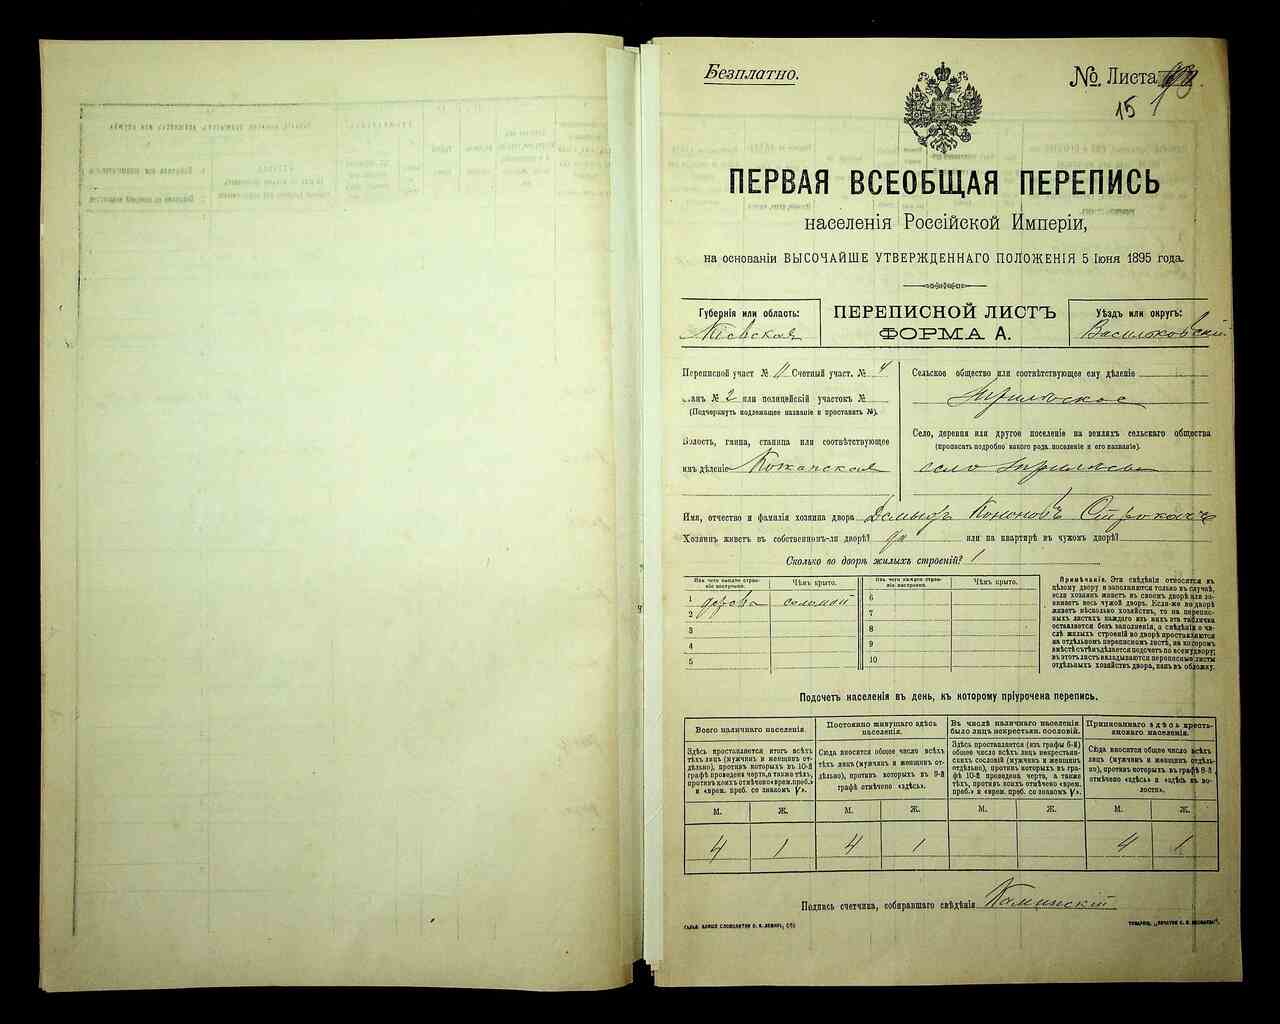 Безплатно.
№. Листа
15
ПЕРВАЯ ВСЕОБЩАЯ ПЕРЕПИСЬ
населенія Россійской Имперіи,
на основаніи ВЫСОЧАЙШЕ УТВЕРЖДЕННАГО ПОЛОЖЕНІЯ 5 Іюня 1895 года.
Губернія или область:
Кіевская
ПЕРЕПИСНОЙ ЛИСТЪ
ФОРМА А.
Уѣздъ или округъ:
Васильковскій
Переписной участ. № 11 Счетный участ. № 4
Станъ № 2 или полицейскій участокъ №
(Подчеркнуть надлежащее названіе и проставить №).
Волость, гмина, станица или соотвѣтствующее
имъ дѣленіе Кожанская
Сельское общество или соотвѣтствующее ему дѣленіе
Трилѣсское
Село, деревня или другое поселеніе на земляхъ сельскаго общества
(прописать подробно какого рода поселеніе и его названіе).
село Трилѣсы
Имя, отчество и фамилія хозяина двора Демьянъ Кононовъ
Хозяинъ живетъ въ собственномъ-ли дворѣ? да или на квартирѣ въ чужомъ дворѣ?
Сколько во дворѣ жилыхъ строеній? 1
Изъ чего каждое строеніе построено.
Чѣмъ крыто.
1 дерева соломой
2
3
4
5
Изъ чего каждое строеніе построено.
Чѣмъ крыто.
6
7
8
9
10
Примѣчаніе. Эти свѣдѣнія относятся къ
цѣлому двору и заполняются только въ случаѣ,
если хозяинъ живетъ въ своемъ дворѣ или занимаетъ
весь чужой дворъ. Если-же во дворѣ
живетъ нѣсколько хозяйствъ, то на переписныхъ
листахъ каждаго изъ нихъ эта табличка
оставляется безъ заполненія, а свѣдѣнія о числѣ
жилыхъ строеній во дворѣ проставляются
на отдѣльномъ переписномъ листѣ, на которомъ
вмѣстѣ съ тѣмъ дѣлается подсчетъ по всему двору;
въ этотъ листъ вкладываются переписные листы
отдѣльныхъ хозяйствъ двора, какъ въ обложку.
Подсчетъ населенія въ день, къ которому пріурочена перепись.
Всего наличнаго населенія.
Постоянно живущаго здѣсь
населенія.
Въ числѣ наличнаго населенія
было лицъ некрестьян. сословій.
Приписаннаго здѣсь крестьянскаго
населенія.
Здѣсь проставляется итогъ всѣхъ
тѣхъ лицъ (мужчинъ и женщинъ отдѣльно),
противъ которыхъ въ 10-й
графѣ проведена черта, а также тѣхъ,
противъ коихъ отмѣчено «врем. преб.»
и «врем. преб. со знакомъ V».
Сюда вносится общее число всѣхъ
тѣхъ лицъ (мужчинъ и женщинъ отдѣльно),
противъ которыхъ въ 9-й
графѣ отмѣчено «здѣсь».
Здѣсь проставляется (изъ графы 6-й)
общее число всѣхъ некрестьянскихъ
сословій (мужчинъ и женщинъ
отдѣльно), противъ которыхъ въ графѣ
10-й проведена черта, а также
тѣхъ, противъ коихъ отмѣчено «врем.
преб.» и «врем. преб. со знакомъ V».
Сюда вносится общее число всѣхъ
лицъ (мужчинъ и женщинъ отдѣльно),
противъ которыхъ въ графѣ 8-й
отмѣчено «здѣсь» и «здѣсь въ волости».
М. Ж. М. Ж. М. Ж. М. Ж.
4 1 4 1 4 1
Подпись счетчика, собиравшаго свѣдѣнія Каминскій